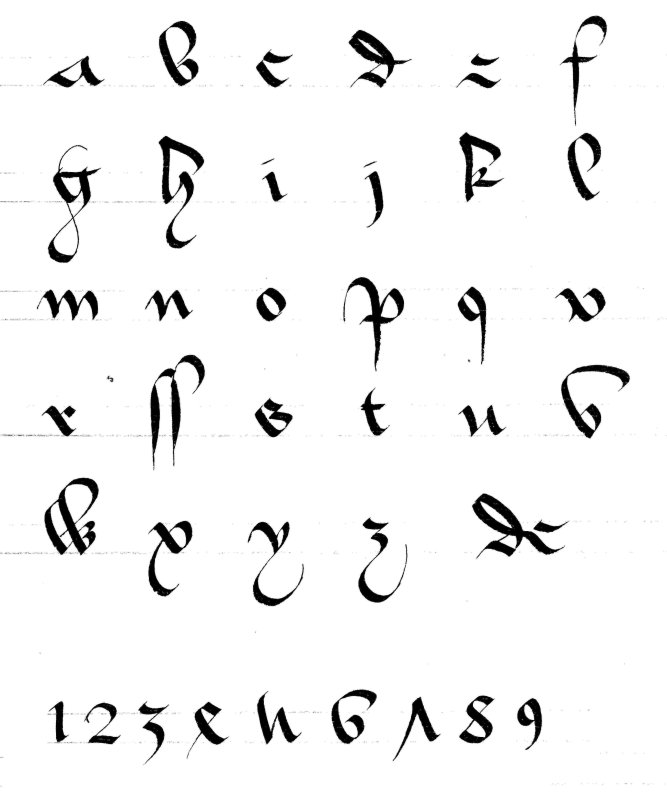 a b c d e f
g h i j k l
m n o p q r
r ſſ s t u v
w x y z de
1 2 3 4 5 6 7 8 9